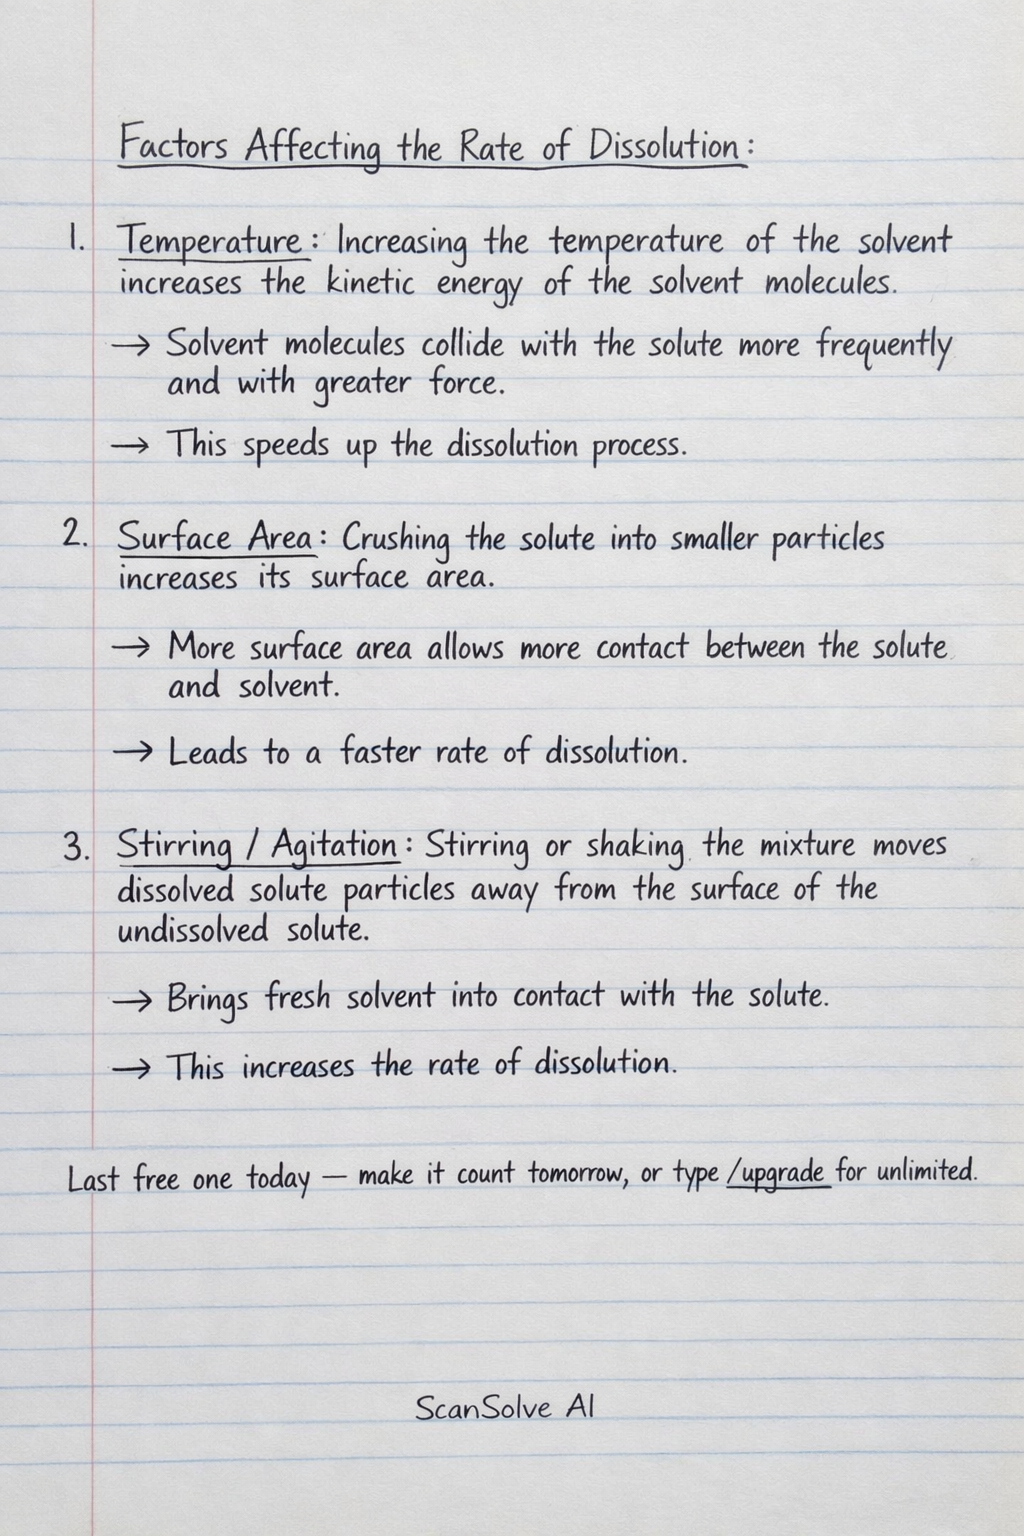 Factors Affecting the Rate of Dissolution:
1. Temperature: Increasing the temperature of the solvent
increases the kinetic energy of the solvent molecules.
→ Solvent molecules collide with the solute more frequently
and with greater force.
→ This speeds up the dissolution process.
2. Surface Area: Crushing the solute into smaller particles
increases its surface area.
→ More surface area allows more contact between the solute
and solvent.
→ Leads to a faster rate of dissolution.
3. Stirring / Agitation: Stirring or shaking the mixture moves
dissolved solute particles away from the surface of the
undissolved solute.
→ Brings fresh solvent into contact with the solute.
→ This increases the rate of dissolution.
Last free one today — make it count tomorrow, or type /upgrade for unlimited.
ScanSolve AI